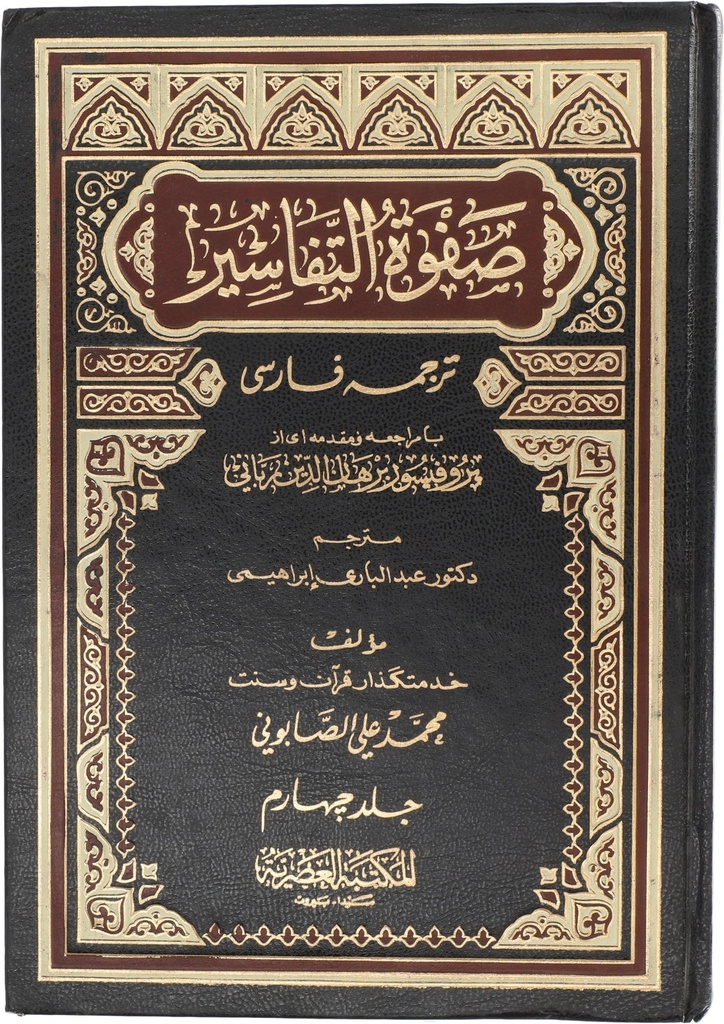 صَفْوَةُ التَّفَاسِير
ترجمه فارسی
با مراجعه و مقدمه ای از
پروفیسور برهان الدّین ربّاني
مترجم
دکتور عبدالباری إبراهیمی
مؤلف
خدمتگذار قرآن و سنت
محمّد علي الصّابوني
جلد چهارم
المكتبة العصرية
صيدا - بيروت